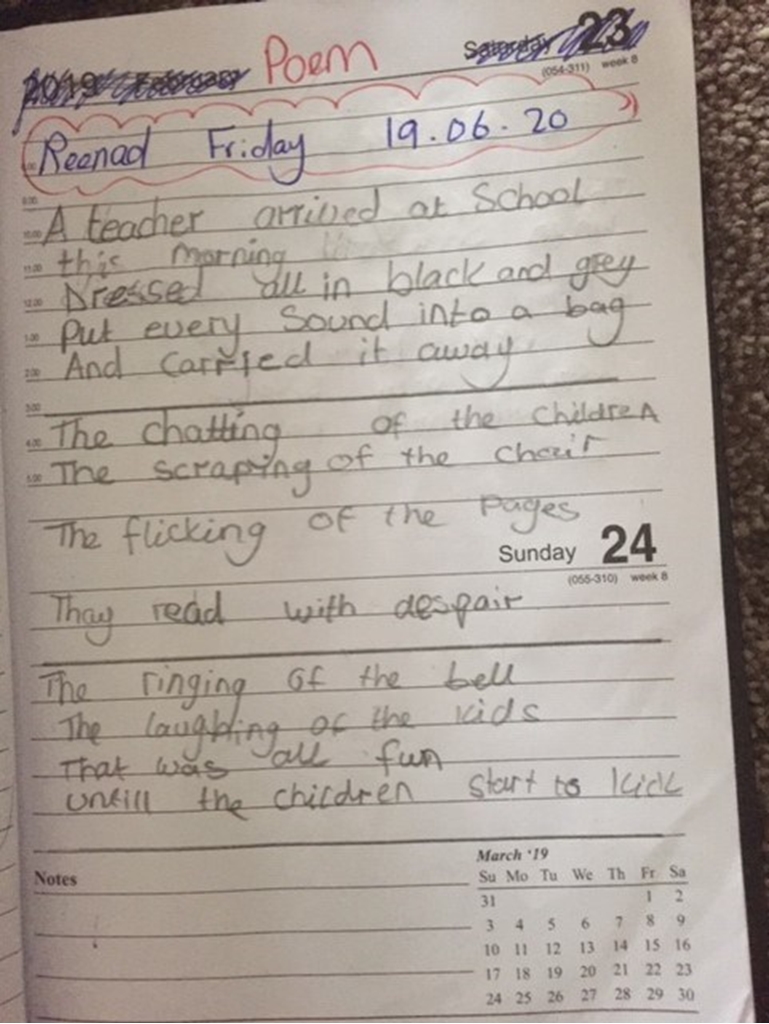 2019 February Poem Saturday 23
(054-311) week 8
Reenad Friday 19.06.20
9.00
A teacher arrived at School
10.00
this morning
11.00
Dressed all in black and grey
12.00
Put every Sound into a bag
1.00
And carried it away
2.00
3.00
The chatting of the children
4.00
The scraping of the chair
5.00
The flicking of the Pages
Sunday 24
(055-310) week 8
Thay read with despair
The ringing of the bell
The laughing of the kids
That was all fun
untill the children start to kick
March '19
Notes
Su Mo Tu We Th Fr Sa
31 1 2
3 4 5 6 7 8 9
10 11 12 13 14 15 16
17 18 19 20 21 22 23
24 25 26 27 28 29 30